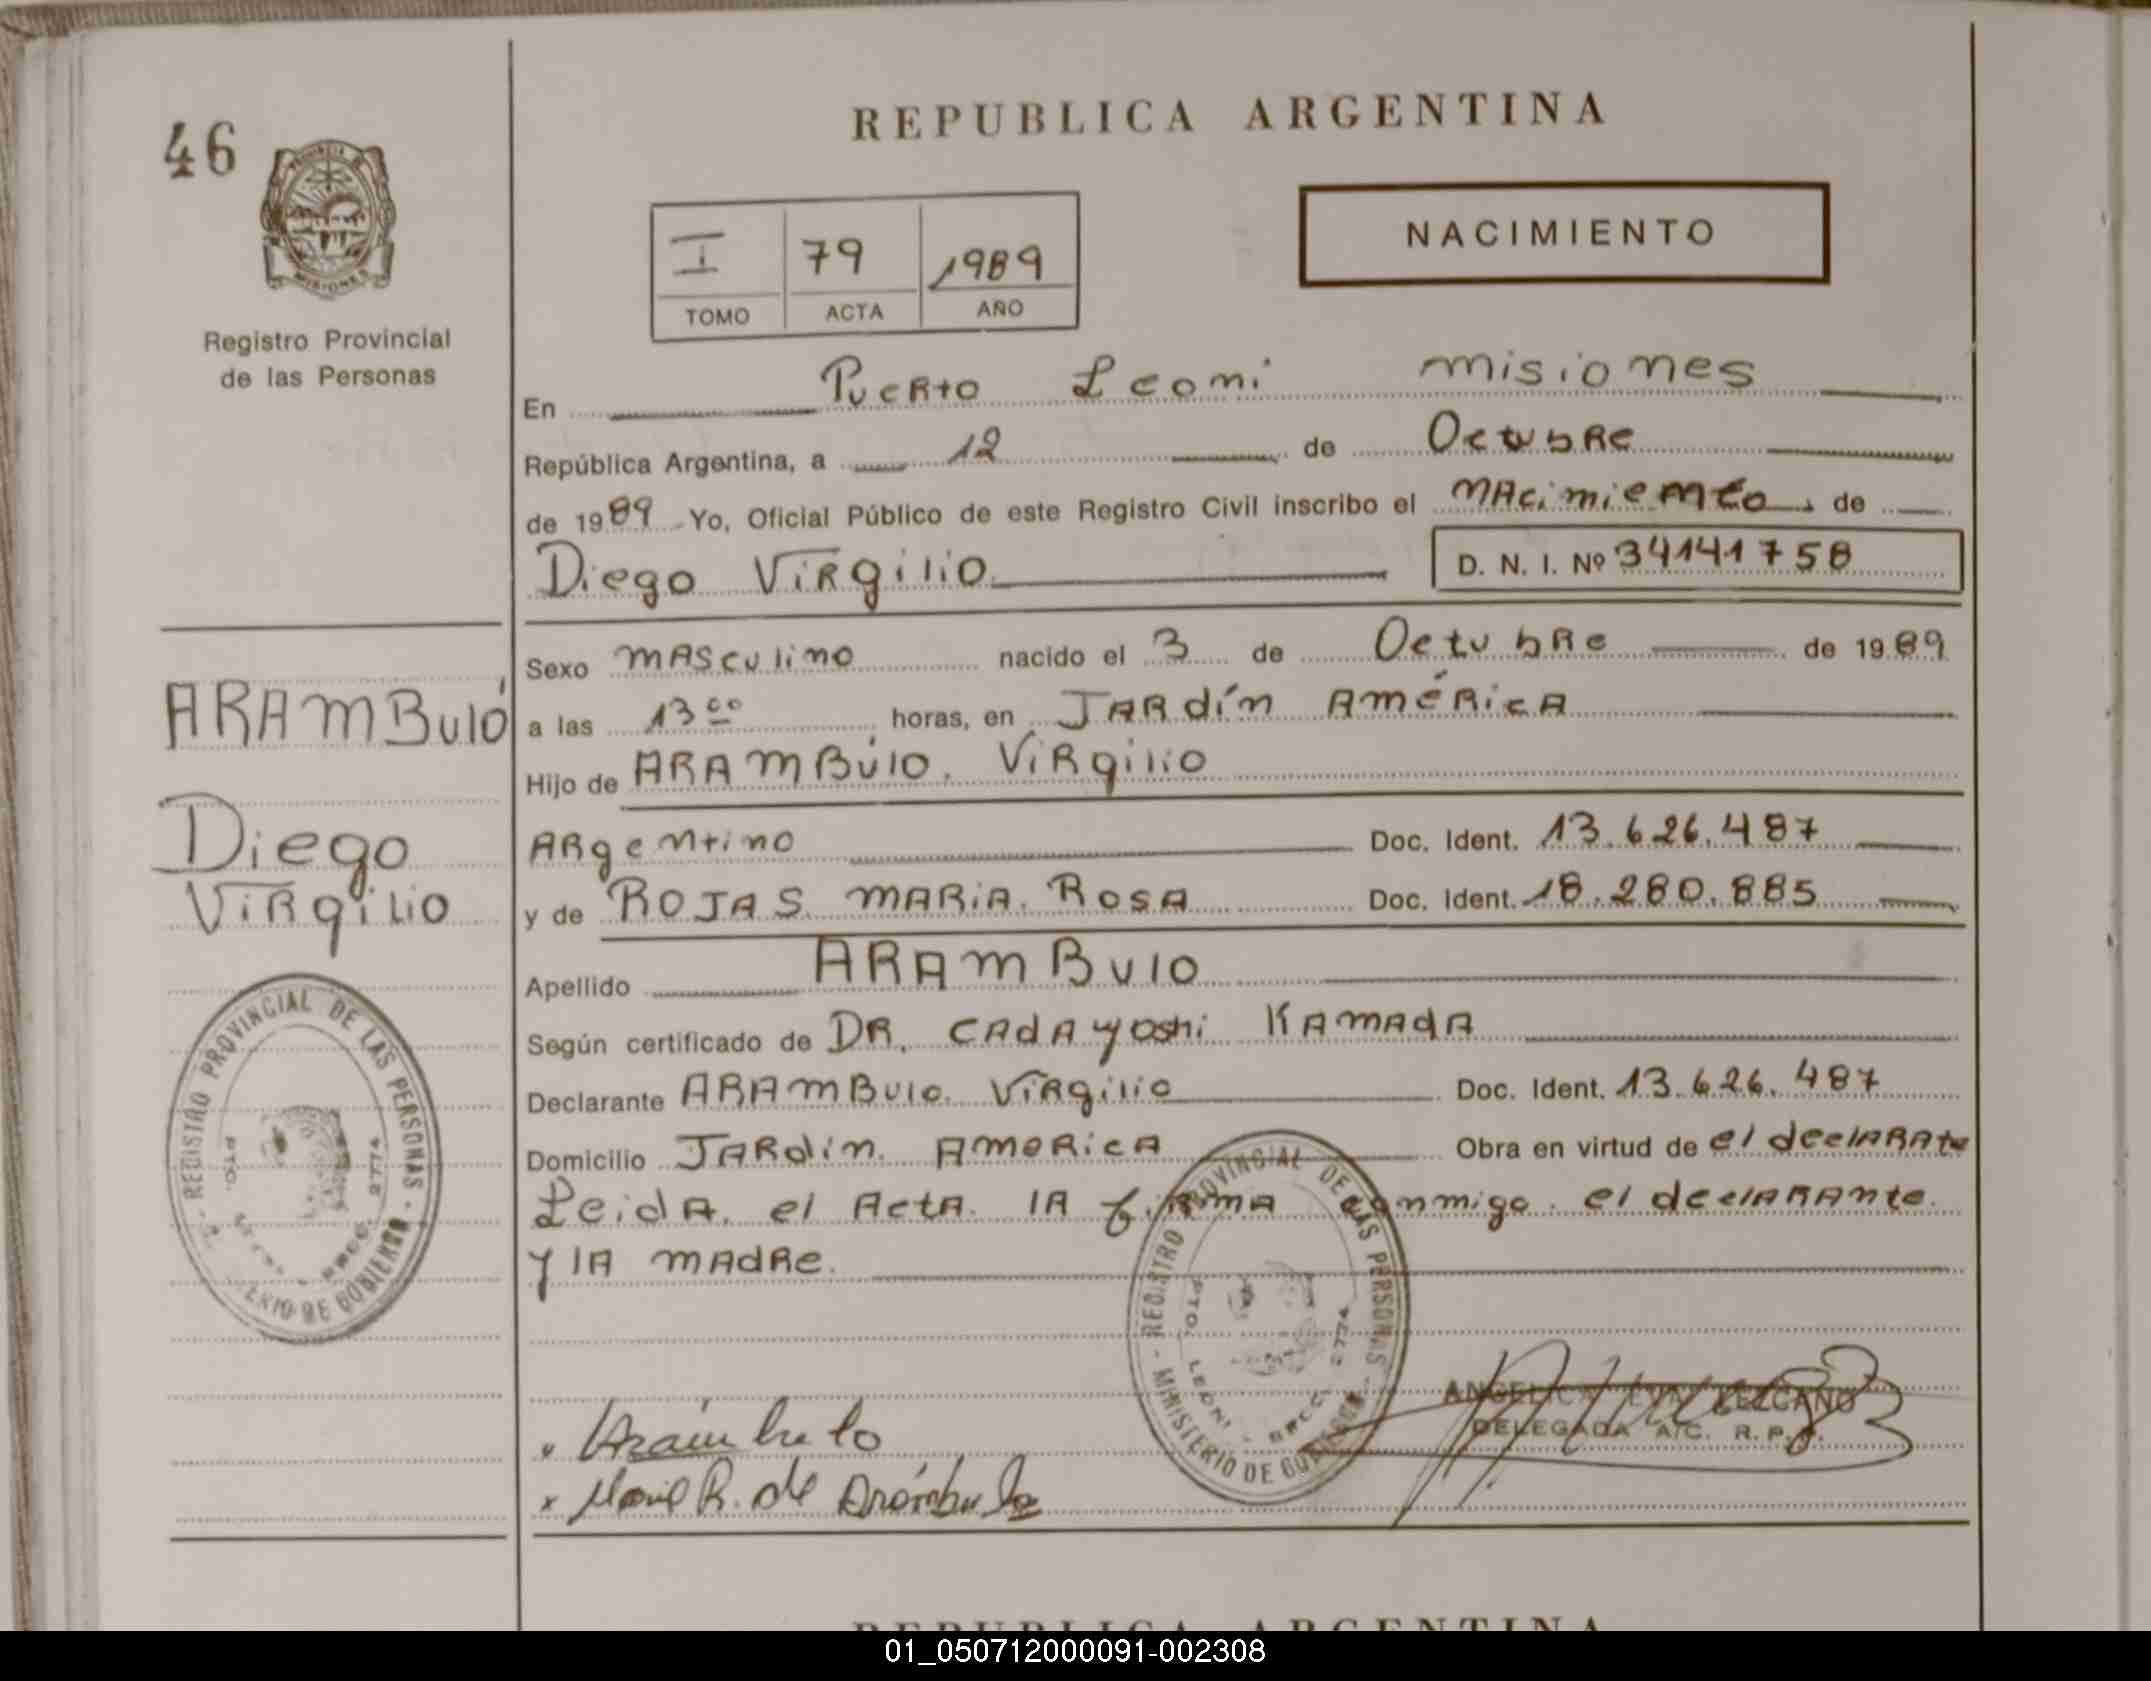 46
PROVINCIA DE
MISIONES
Registro Provincial
de las Personas
REPUBLICA ARGENTINA
NACIMIENTO
I 79 1989
TOMO ACTA AÑO
En Puerto Leoni misiones
República Argentina, a 12 de Octubre
de 1989 Yo, Oficial Público de este Registro Civil inscribo el nacimiento de
Diego Virgilio D. N. I. Nº 34141758
Sexo masculino nacido el 3 de Octubre de 1989
a las 13 00 horas, en Jardín América
Hijo de ARAMBULO, Virgilio
Argentino Doc. Ident. 13.626.487
y de ROJAS MARIA ROSA Doc. Ident. 18.280.885
Apellido ARAMBULO
Según certificado de DR. CADAYOSHI KAMADA
Declarante ARAMBULO Virgilio Doc. Ident. 13.626.487
Domicilio Jardin America Obra en virtud de el declarate
Leida el Acta la firma conmigo el declarante
y la madre.
ARAMBULO
Diego
Virgilio
REGISTRO PROVINCIAL DE LAS PERSONAS
MINISTERIO DE GOBIERNO
PTO. LEONI 2774
Arámbulo
Maria R. de Arámbulo
ANGELICA LEZCANO
DELEGADA A/C. R. P. P.
REPUBLICA ARGENTINA
01_050712000091-002308